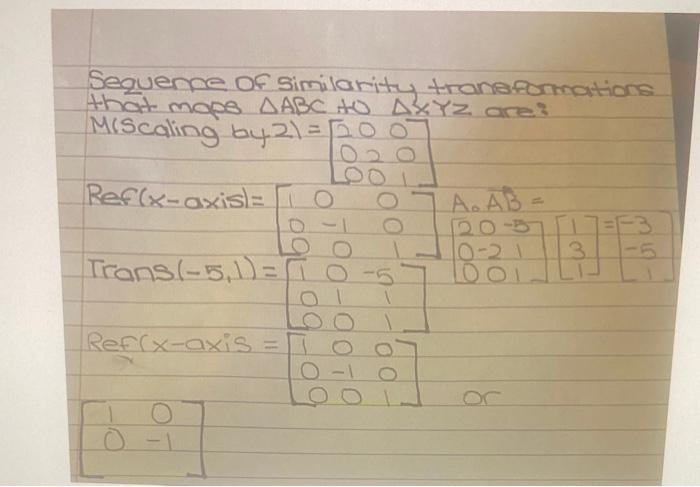 Sequence of similarity transformations
that maps △ABC to △XYZ are:
M(Scaling by 2) = [2 0 0
0 2 0
0 0 1]
Ref(x-axis) = [1 0 0
0 -1 0
0 0 1]
A₀ AB =
[2 0 -5
0 -2 1
0 0 1] [1
3
1] = [-3
-5
1]
Trans(-5,1) = [1 0 -5
0 1 1
0 0 1]
Ref(x-axis = [1 0 0
0 -1 0
0 0 1] or
[1 0
0 -1]